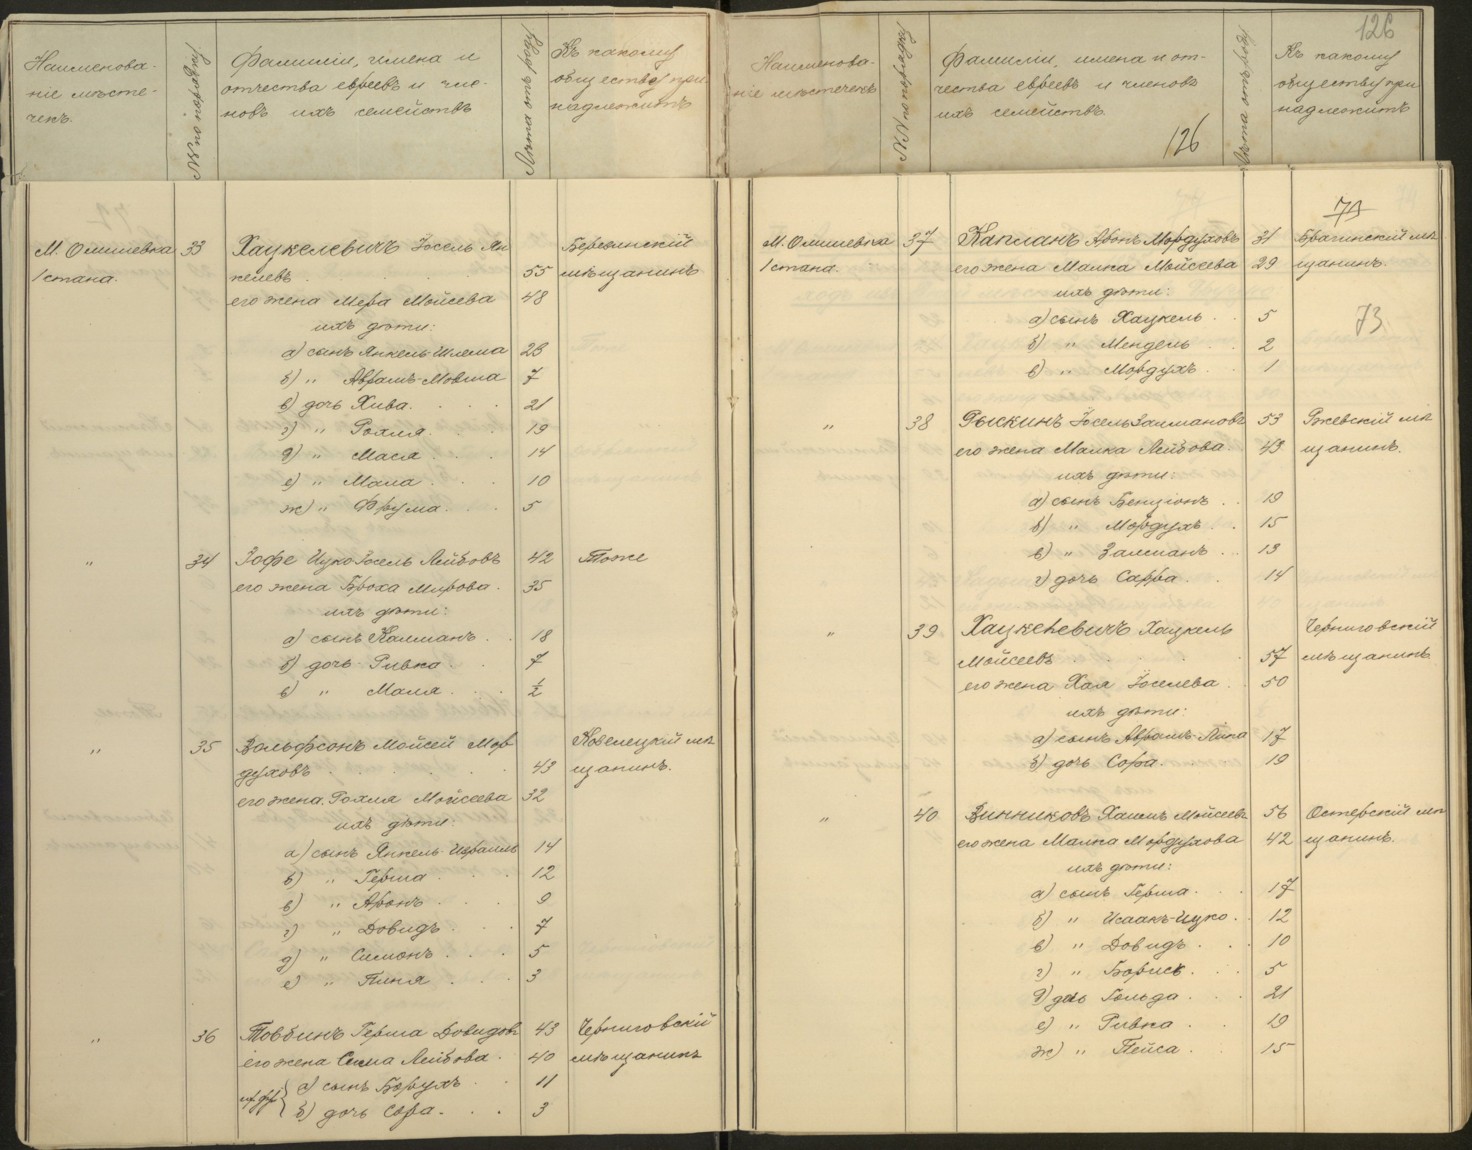 Наименова-
ніе мѣсте-
чекъ.
№№ по порядку
Фамиліи, имена и
отчества евреевъ и чле-
новъ ихъ семействъ
Лѣта отъ роду
Къ какому
обществу при
надлежитъ
М. Олишевка
1 стана.
33
Хацкелевичъ Іосель Ян
келевъ
55
Березинскій
мѣщанинъ
его жена Мера Мойсева 48
ихъ дѣти:
а) сынъ Янкель-Шлема 23
б) " Абрамъ-Мовша 7
в) дочь Хива 21
г) " Рохля 19
д) " Мася 14
е) " Мала 10
ж) " Фрума 5
" 34 Зофе Ицко Іосель Лейбовъ 42 Тоже
его жена Броха Мирова 35
ихъ дѣти:
а) сынъ Калманъ 18
б) дочь Ривка 7
в) " Маля ½
" 35 Вольфсонъ Мойсей Мор Козелецкій мѣ
духовъ 43 щанинъ.
его жена Рохля Мойсеева 32
ихъ дѣти:
а) сынъ Янкель-Израиль 14
б) " Герша 12
в) " Аронъ 9
г) " Довидъ 7
д) " Симонъ 5
е) " Пиня 3
" 36 Товбинъ Герша Довидовъ 43 Черниговскій
его жена Сима Лейбова 40 мѣщанинъ
а) сынъ Борухъ 11
б) дочь Сора 3
126
Наименова-
ніе мѣстечекъ
№№ по порядку
Фамиліи, имена и от-
чества евреевъ и членовъ
ихъ семействъ
126
Лѣта отъ роду
Къ какому
обществу при
надлежитъ
74
М. Олишевка 37 Капланъ Аронъ Мордуховъ 31 Брагинскій мѣ
1 стана. его жена Малка Мойсеева 29 щанинъ.
ихъ дѣти:
а) сынъ Хацкель 5
73
б) " Мендель 2
в) " Мордухъ 1
" 38 Рыскинъ Іосель Залмановъ 53 Ржевскій мѣ
его жена Малка Лейбова 43 щанинъ.
ихъ дѣти:
а) сынъ Бенціонъ 19
б) " Мордухъ 15
в) " Залманъ 13
г) дочь Сарра 14
" 39 Хацкелевичъ Хацкель Черниговскій
Мойсеевъ 57 мѣщанинъ
его жена Хая Іоселева 50
ихъ дѣти:
а) сынъ Абрамъ-Лейба 17
б) дочь Сора 19
" 40 Винниковъ Хаимъ Мойсеевъ 56 Остерскій мѣ
его жена Малка Мордухова 42 щанинъ.
ихъ дѣти:
а) сынъ Герша 17
б) " Исаакъ-Ицко 12
в) " Довидъ 10
г) " Борисъ 5
д) дочь Гольда 21
е) " Ривка 19
ж) " Пейса 15